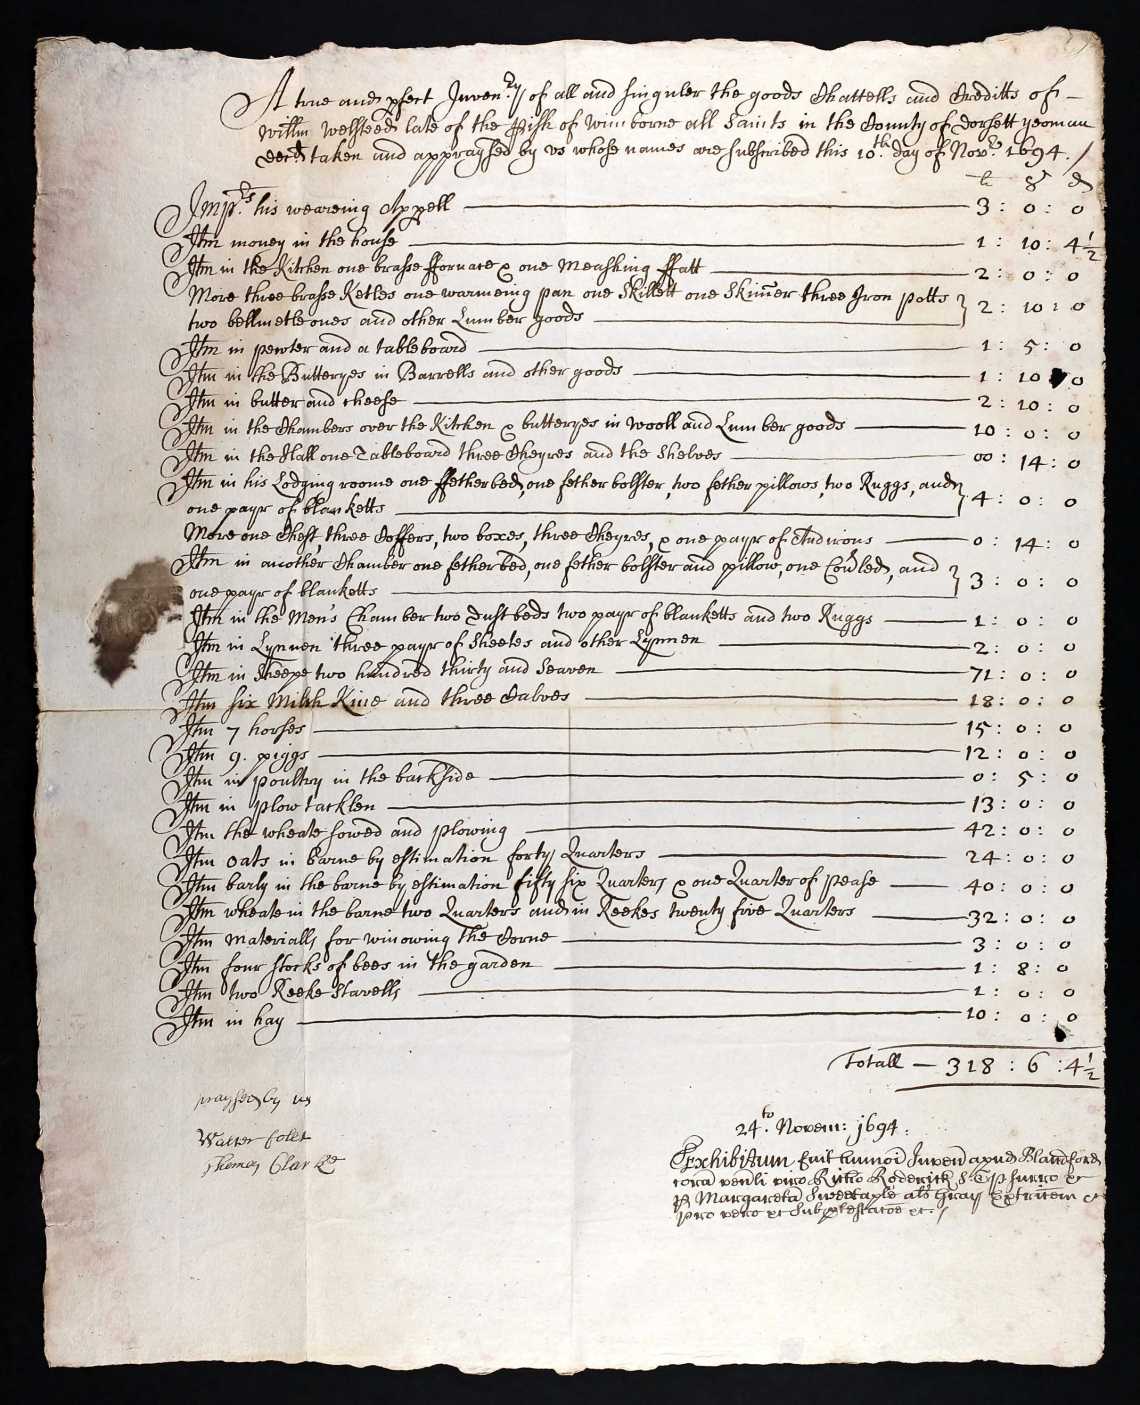 A true and pfect Inven:ry of all and singuler the goods Chattells and Creditts of
Willm Welsteed late of the Pish of Wimborne all Saints in the County of Dorsett yeoman
decd taken and appraysed by us whose names are subscribed this 10th: day of Novr: 1694 /
li s d
Imprs: his weareing Appell 3 : 0 : 0
Itm money in the house 1 : 10 : 4 1/2
Itm in the Kitchen one brasse ffornace & one Meashing ffatt 2 : 0 : 0
More three brasse Ketles one warmeing pan one Skillett one Skimer three Iron potts
two bellmetle ones and other Lumber goods 2 : 10 : 0
Itm in pewter and a tableboard 1 : 5 : 0
Itm in the Butteryes in Barrells and other goods 1 : 10 : 0
Itm in butter and cheese 2 : 10 : 0
Itm in the Chambers over the Kitchen & butteryes in wooll and Lumber goods 10 : 0 : 0
Itm in the Hall one Tableboard three Cheyres and the Shelves 00 : 14 : 0
Itm in his Lodging roome one ffetherbed, one fether bolster, two fether pillows, two Ruggs, and
one payr of blanketts 4 : 0 : 0
More one Chest three Coffers, two boxes, three Cheyres, & one payr of Andirons 0 : 14 : 0
Itm in another Chamber one fether bed, one fether bolster and pillow, one Covrled, and
one payr of blanketts 3 : 0 : 0
Itm in the Men's Chamber two Dust beds two payr of blanketts and two Ruggs 1 : 0 : 0
Itm in Lynnen three payr of Sheetes and other Lynnen 2 : 0 : 0
Itm in Sheepe two hundred thirty and Seaven 71 : 0 : 0
Itm six Milch Kine and three Calves 18 : 0 : 0
Itm 7 horses 15 : 0 : 0
Itm 9. piggs 12 : 0 : 0
Itm in poultry in the backside 0 : 5 : 0
Itm in plow tacklen 13 : 0 : 0
Itm the wheate sowed and plowing 42 : 0 : 0
Itm oats in barne by estimation forty Quarters 24 : 0 : 0
Itm barly in the barne by estimation fifty six Quarters & one Quarter of pease 40 : 0 : 0
Itm wheate in the barne two Quarters and in Reekes twenty five Quarters 32 : 0 : 0
Itm materialls for winowing the Corne 3 : 0 : 0
Itm four stocks of bees in the garden 1 : 8 : 0
Itm two Reeke Stavells 1 : 0 : 0
Itm in hay 10 : 0 : 0
Totall 318 : 6 : 4 1/2
praysed by us
Walter Collt
Thomas Clarke
24to. Novem: 1694.
Exhibitum fuit humoi Inven apud Blandford
cora venli viro Richo Roderick S: T: P surro &c
p Margareta Sweetaple als Gray extricem &c
pro vero &c sub ptestacoe &c /